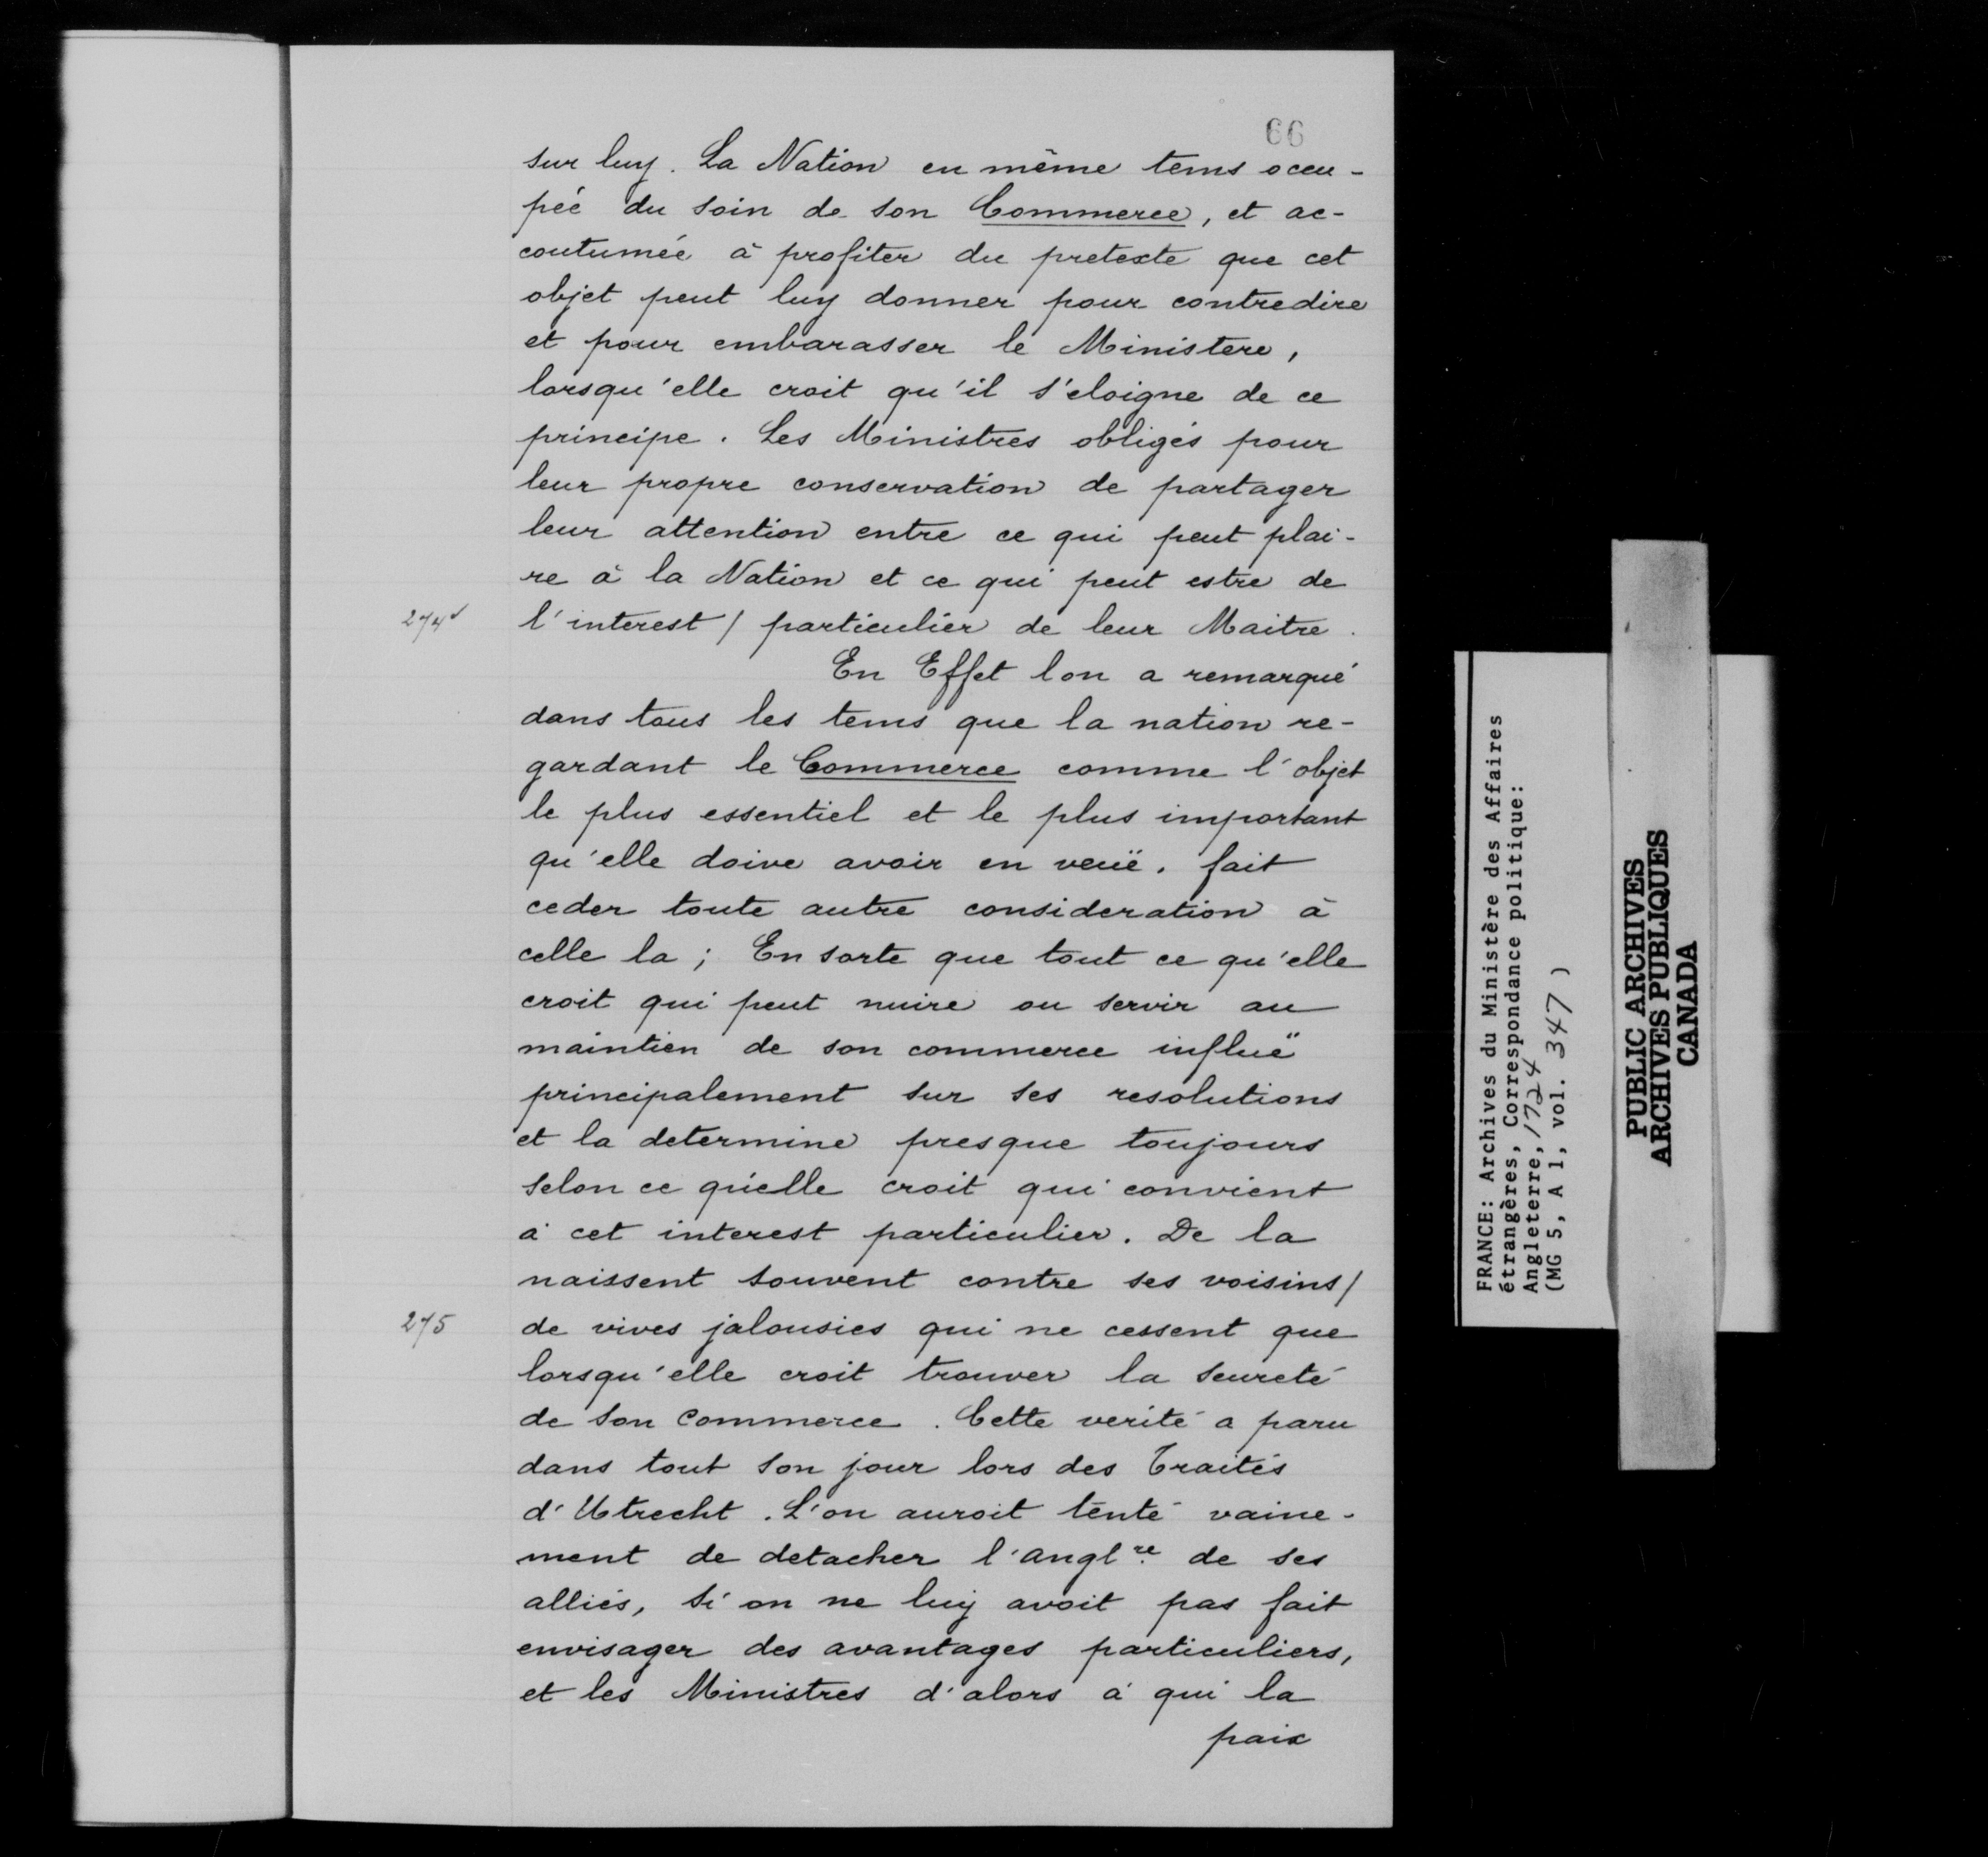 66
sur luy. La Nation en même tems occu-
pée du soin de son Commerce, et ac-
coutumée à profiter du pretexte que cet
objet peut luy donner pour contredire
et pour embarasser le Ministere,
lorsqu'elle croit qu'il s'eloigne de ce
principe. Les Ministres obligés pour
leur propre conservation de partager
leur attention entre ce qui peut plai-
re à la Nation et ce qui peut estre de
274v l'interest / particulier de leur Maitre.
En Effet lon a remarqué
dans tous les tems que la nation re-
gardant le Commerce comme l'objet
le plus essentiel et le plus important
qu'elle doive avoir en veuë, fait
ceder toute autre consideration à
celle la; En sorte que tout ce qu'elle
croit qui peut nuire ou servir au
maintien de son commerce influë
principalement sur ses resolutions
et la determine presque toujours
selon ce qu'elle croit qui convient
à cet interest particulier. De la
naissent souvent contre ses voisins /
275 de vives jalousies qui ne cessent que
lorsqu'elle croit trouver la seureté
de son Commerce. Cette verité a paru
dans tout son jour lors des Traités
d'Utrecht. L'on auroit tenté vaine-
ment de detacher l'anglre de ses
alliés, si on ne luy avoit pas fait
envisager des avantages particuliers,
et les Ministres d'alors à qui la
paix
FRANCE: Archives du Ministère des Affaires
étrangères, Correspondance politique:
Angleterre, 1724
(MG 5, A 1, vol. 347)
PUBLIC ARCHIVES
ARCHIVES PUBLIQUES
CANADA